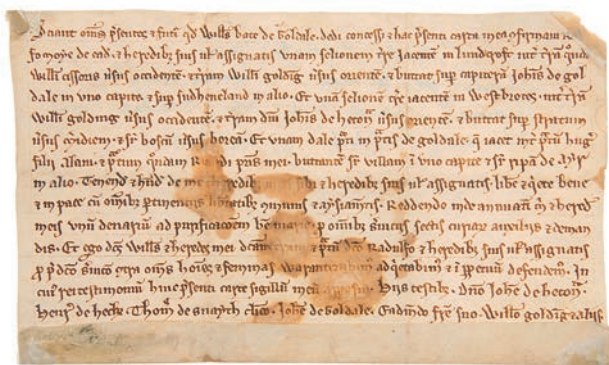 Sciant om̄s p̄sentes & futur̄ qd Wills bate de Goldale dedi concessi & hac p̄senti carta mea cōfirmaui
de ead & heredib; suis ul' assignatis vnam selionem t̄re Jacentē in lundcroft int̄ t̄rā
willi cissoris v̄sus occidentē & t̄ram willi golding v̄sus orientē & butat sup capitrā Joh̄is de gol
dale in vno capite & sup sudheneland in alio. Et vnā selionē t̄re iacentē in Westbrotes int̄ t̄rā
willi golding v̄sus occidentē & t̄ram dn̄i Joh̄is de heton v̄sus orientē & butat sup stratum
v̄sus m̄idiem & sr̄ boscū v̄sus boreā. Et vnam dale p̄ti in p̄tis de goldale q̄ iacet int̄ p̄tū hug'
filii Alani & p̄tum quōdam p̄ris mei butantē sr̄ villam ī vno capite & sr̄ ripā de
in alio. Tenend & hn̄d de me & heredib; & heredib; suis ul' assignatis libe & q̄ete bene
& in pace cū omīb; p̄tinentiis libtatib; & aysiam̄tis. Reddendo inde annuatī m̄ & hered
meis vnū denariū ad purificacoēm be marie p̄ omīb; s̄uiciis sectis curiar̄ auxiliis & deman
dis. Et ego dc̄s Wills & heredes mei dc̄am t̄ram & p̄tū dc̄o Radulfo & heredib; suis ul' assignatis
p̄ p̄dc̄o s̄uicio cont̄ om̄s hoīes & feminas warantizabim̄ adq̄etabim̄ & ī ppetuū defendem̄. In
cui' rei testimoniū huic p̄senti carte sigillū meū apposui. Hiis testib; Dn̄o Joh̄e de heton
Henr̄ de heck. Thom̄ de snayth cl̄ico. Joh̄e de Goldale. Eadmūdo fr̄e suo. Willo golding & aliis